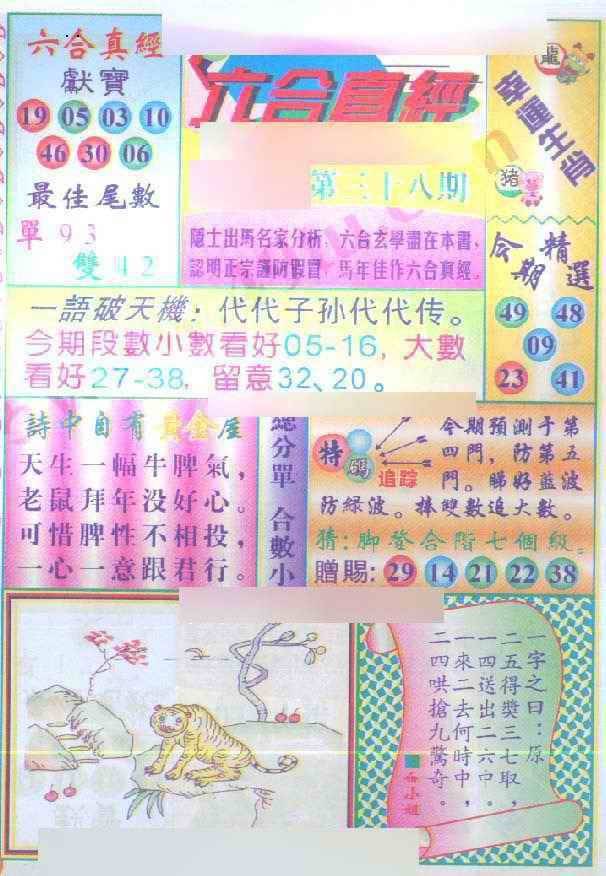 六合真經
獻寶
19 05 03 10
46 30 06
最佳尾數
單 9 3
雙 4 2
六合真經
第三十八期
隱士出馬名家分析，六合玄學盡在本書，
認明正宗謹防假冒，馬年佳作六合真經。
龍
幸運生肖
豬
今期精選
49 48
09
23 41
一語破天機：代代子孙代代传。
今期段數小數看好05-16，大數
看好27-38，留意32、20。
詩中自有黃金屋
天生一幅牛脾氣，
老鼠拜年没好心。
可惜脾性不相投，
一心一意跟君行。
總分單 合數小
特碼
追踪
今期預測于第
四門，防第五
門。睇好藍波
防綠波。捧雙數追大數。
猜：脚登合階七個級。
贈賜：29 14 21 22 38
一字之曰：原
二五得獎三七取，
一四送出二六口。
一來二去何時中，
二四哄搶九驚奇。
小姐